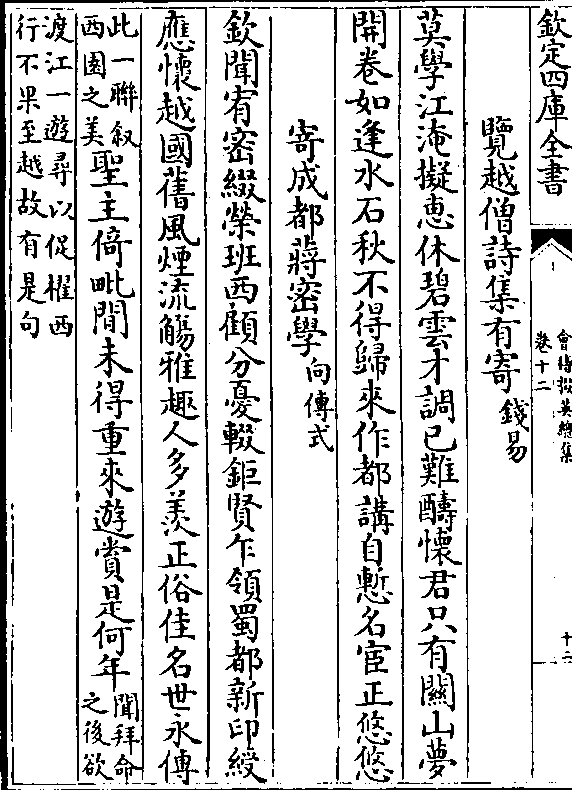 欽定四庫全書
會稽掇英總集
卷十二
十二
覽越僧詩集有寄 錢易
莫學江淹擬恵休碧雲才調已難醻懷君只有關山夢
開卷如逢水石秋不得歸來作都講自慙名宦正悠悠
寄成都蔣密學 向傳式
欽聞宥密綴榮班西顧分憂輟鉅賢乍領蜀都新印綬
應懷越國舊風煙流觴雅趣人多羡正俗佳名世永傳
此一聯叙
西園之美
聖主倚毗間未得重來遊賞是何年
聞拜命
之後欲
渡江一遊尋以促櫂西
行不果至越故有是句